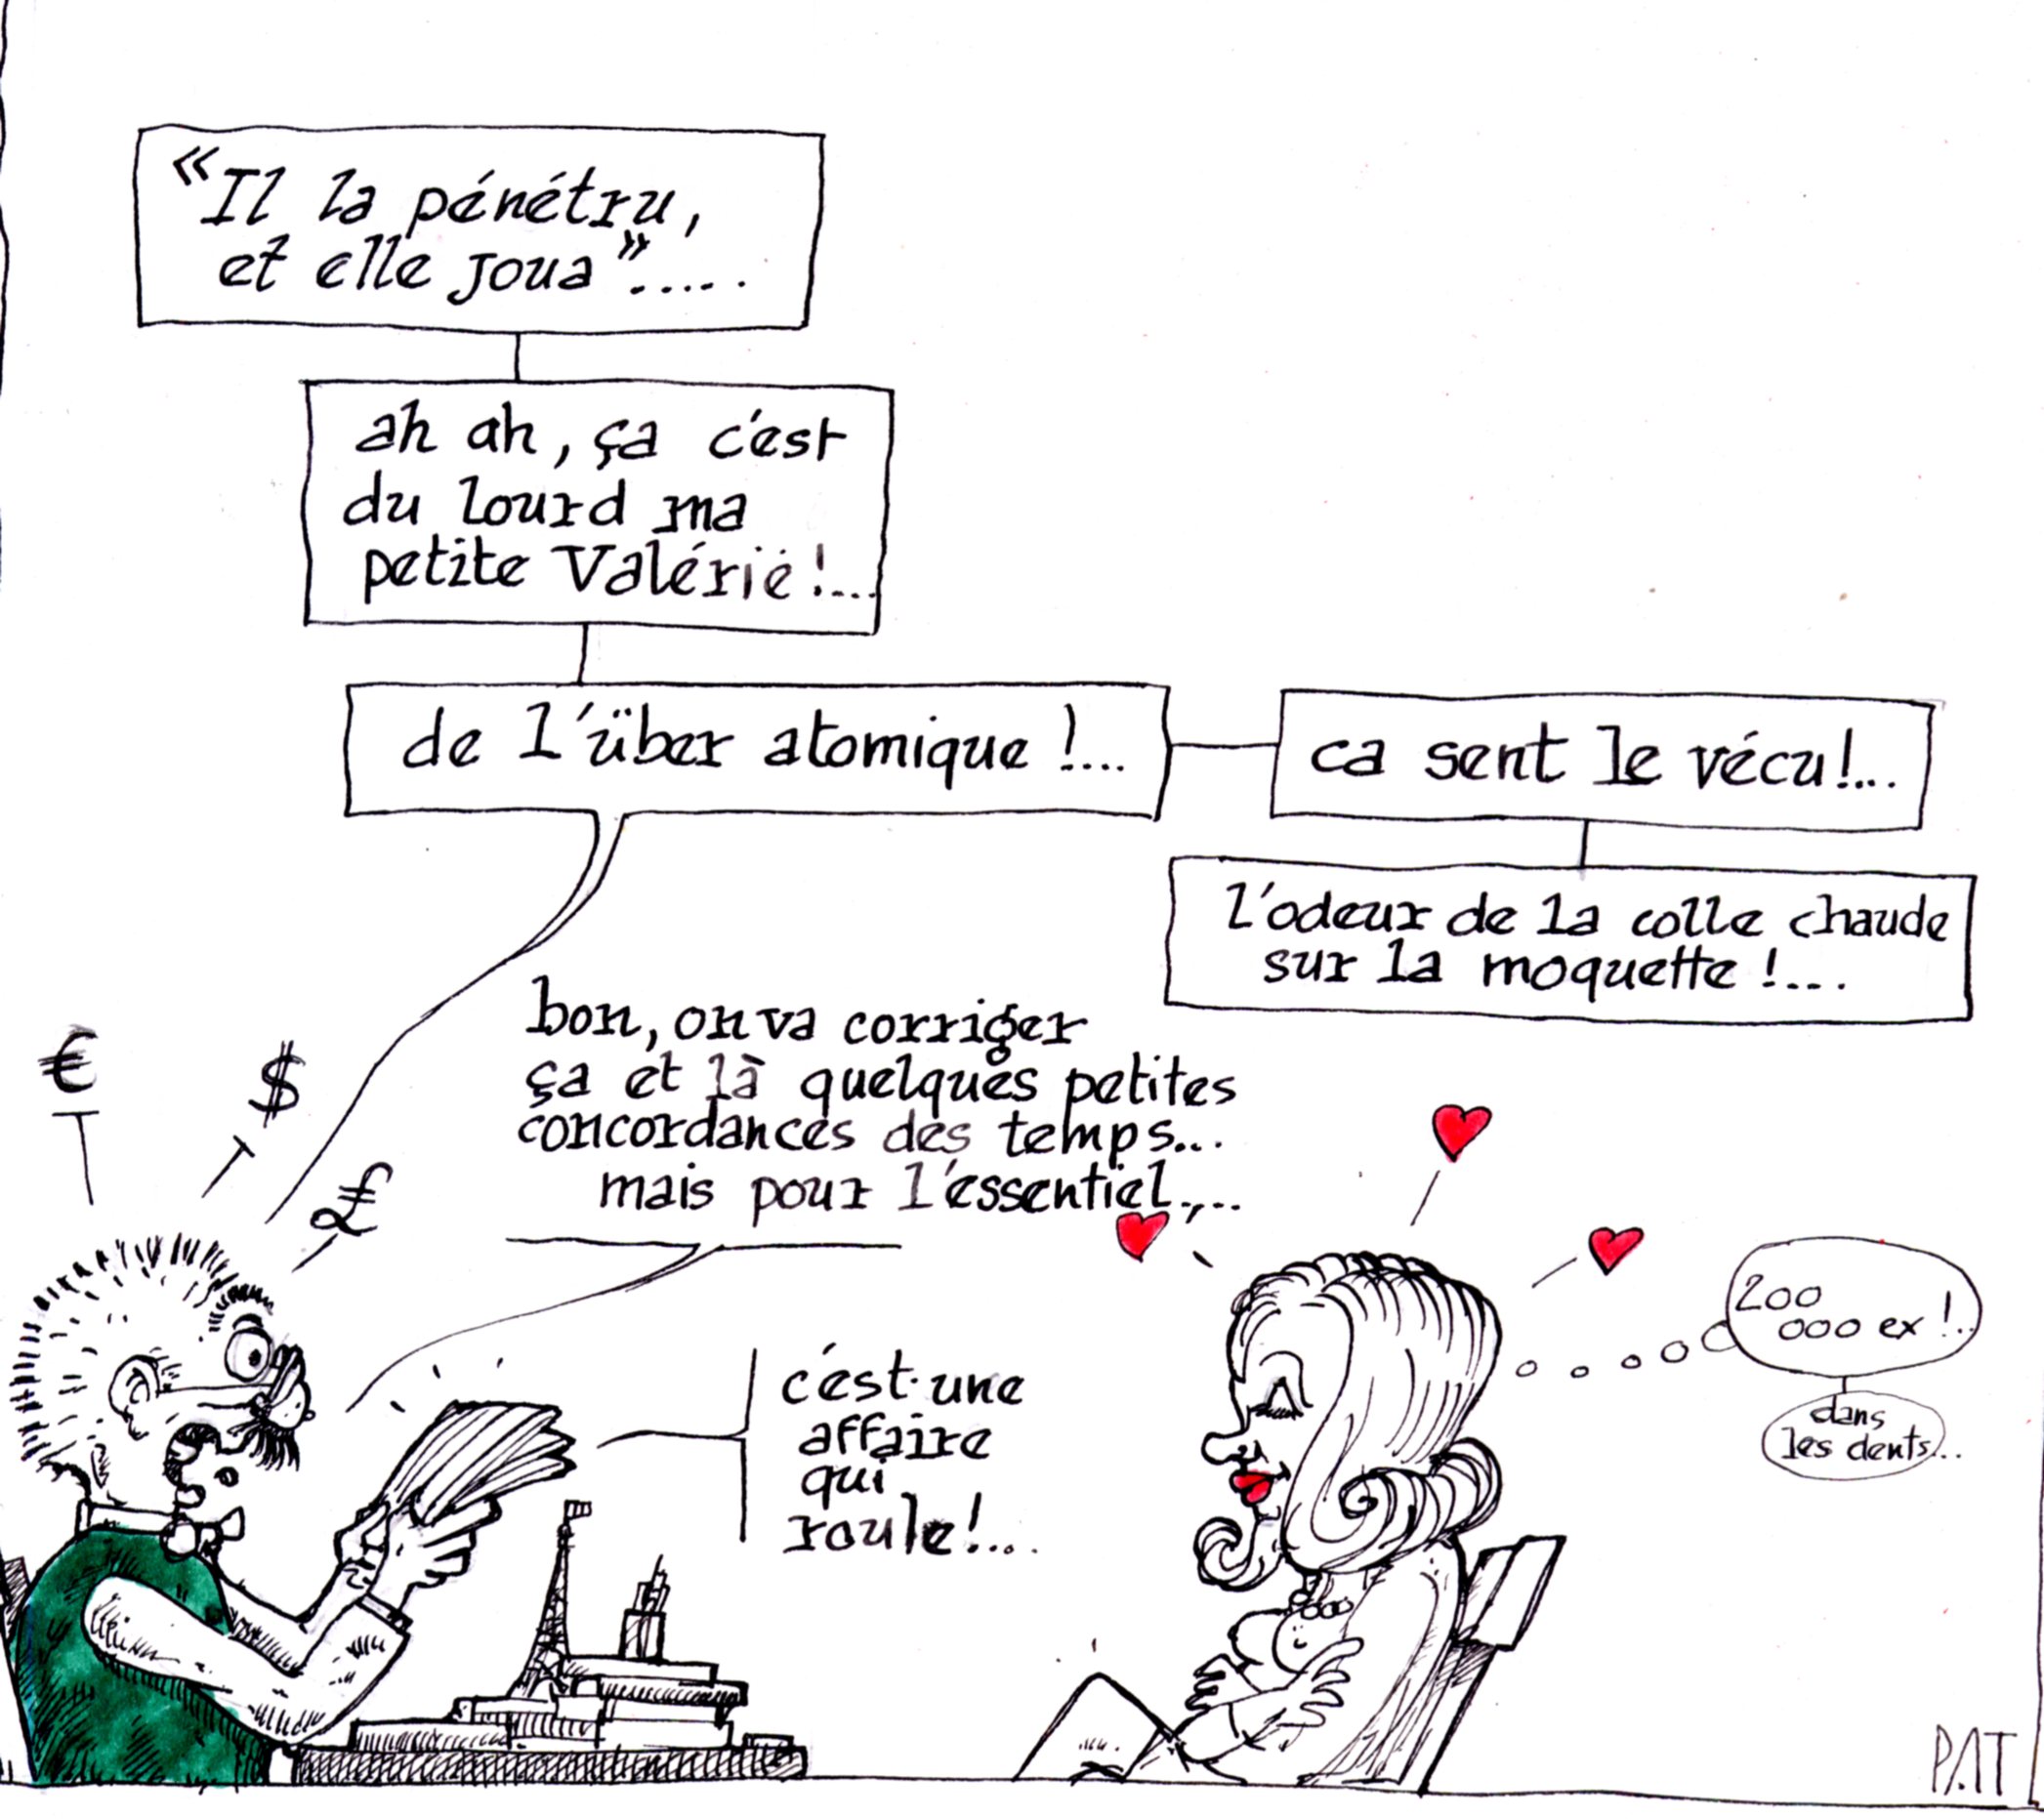 «Il la pénétru,
et elle joua».....
ah ah, ça c'est
du lourd ma
petite Valérie!...
de l'über atomique!...
ca sent le vécu!...
l'odeur de la colle chaude
sur la moquette!....
bon, on va corriger
ça et là quelques petites
concordances des temps...
mais pour l'essentiel....
€
$
£
c'est une
affaire
qui
roule!....
200
000 ex!..
dans
les dents...
PAT